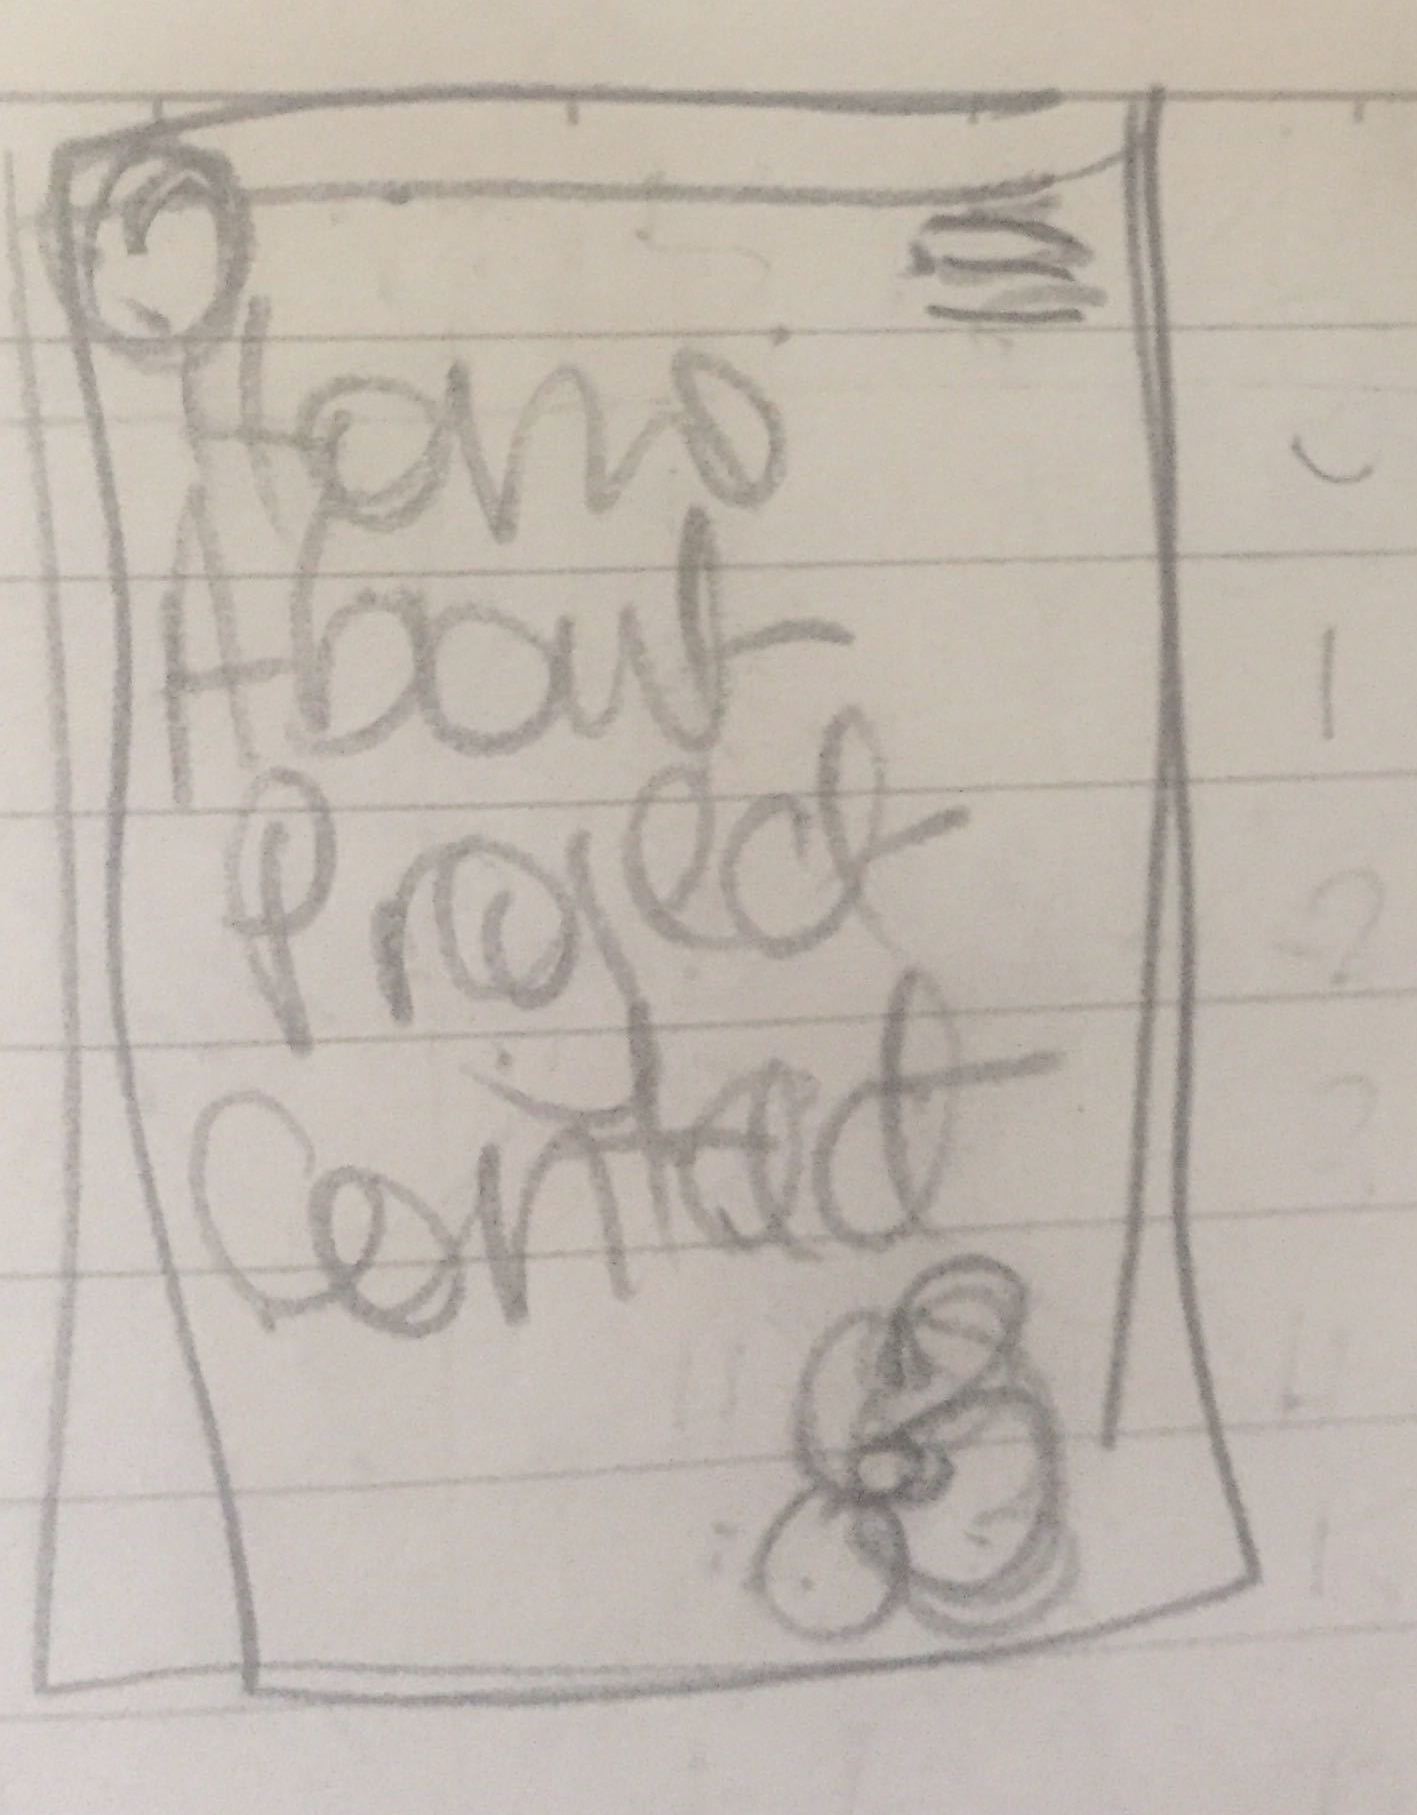 Home
About
Project
Contact